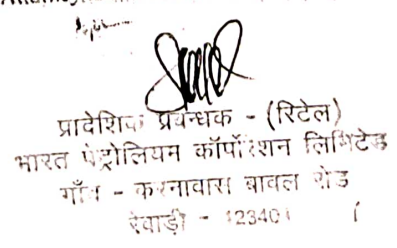 प्रादेशिक प्रबन्धक - (रिटेल)
भारत पेट्रोलियम कॉर्पोरेशन लिमिटेड
गाँव - करनावास बावल रोड
रेवाड़ी - 123401